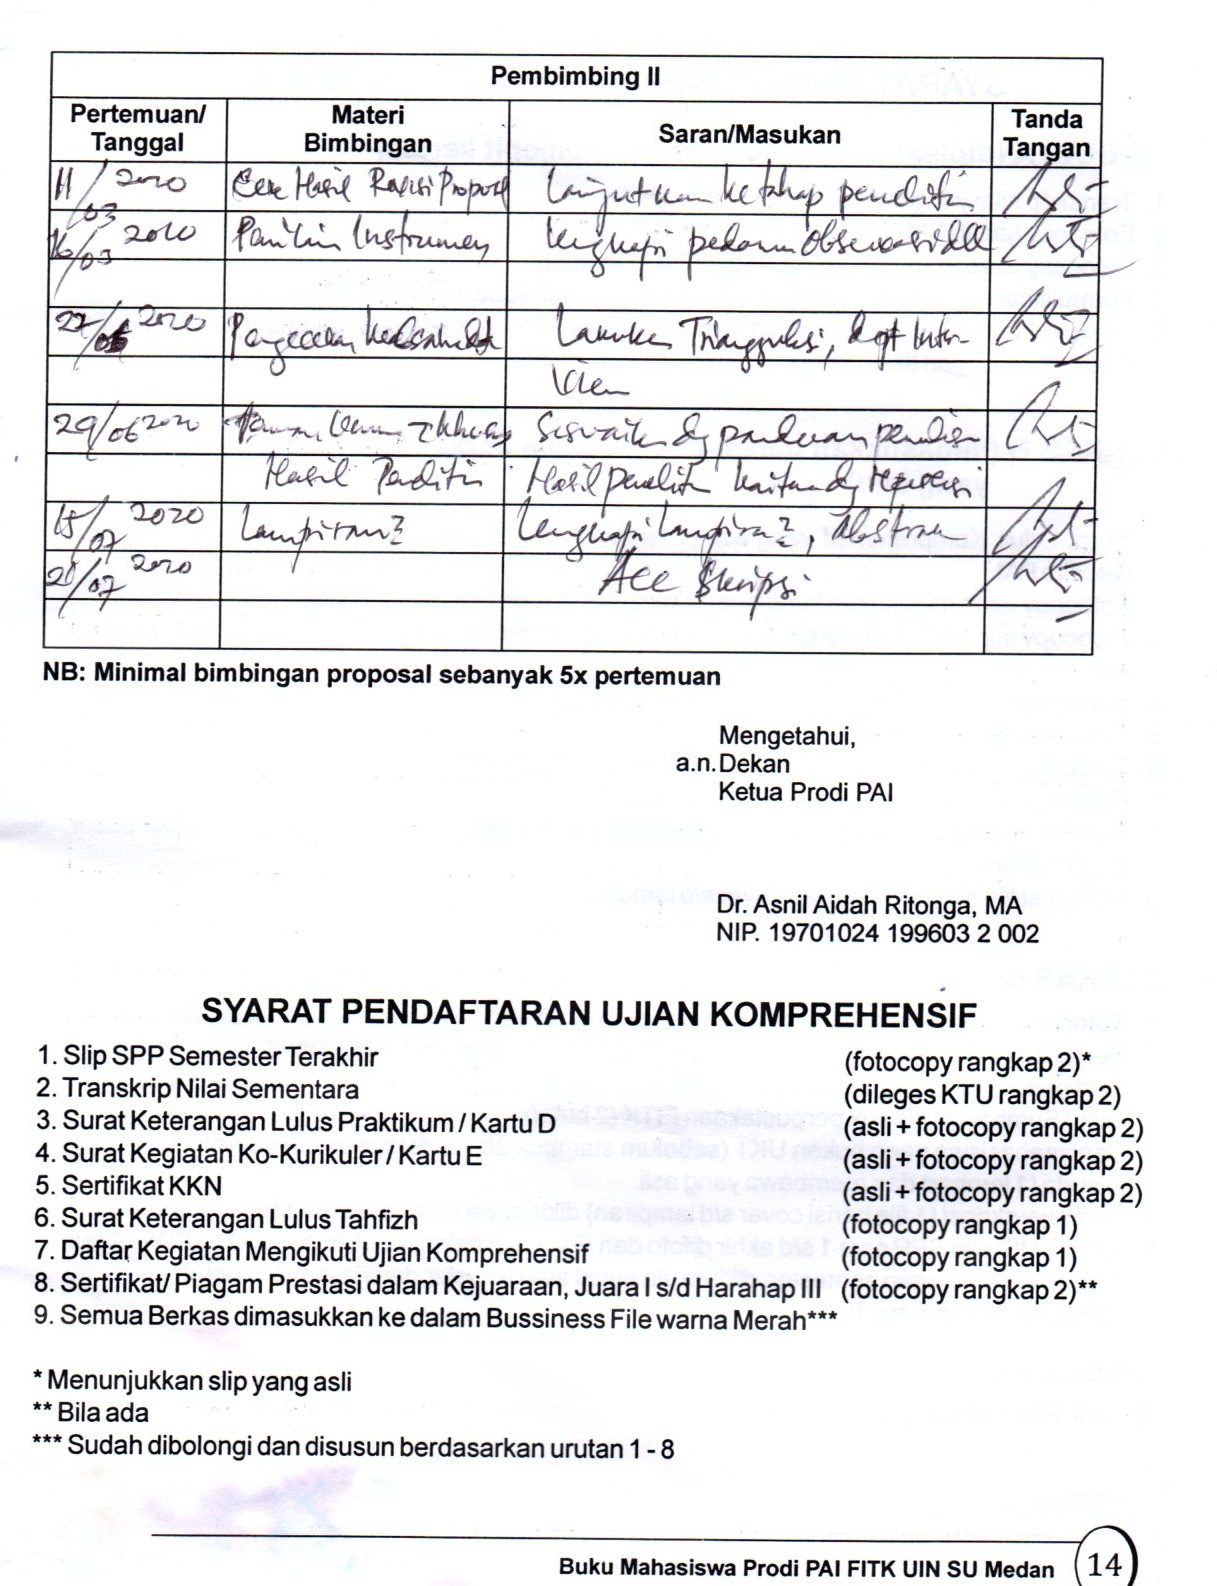 Pembimbing II
Pertemuan/ Tanggal
Materi Bimbingan
Saran/Masukan
Tanda Tangan
11/03 2020 Hasil Revisi Proposal Lanjutkan ke tahap penelitian
16/03 2020 Instrumen lengkapi pedoman observasi dll
22/06 2020 Pengecekan keabsahan Lakukan Triangulasi,
View
29/06 2020 Sesuaikan dg panduan penulisan
Hasil Penelitian Hasil penelitian kaitan dg
15/07 2020 Lampiran2 Lengkapi Lampiran2, Abstrak
21/07 2020 Acc Skripsi
NB: Minimal bimbingan proposal sebanyak 5x pertemuan
Mengetahui,
a.n. Dekan
Ketua Prodi PAI
Dr. Asnil Aidah Ritonga, MA
NIP. 19701024 199603 2 002
SYARAT PENDAFTARAN UJIAN KOMPREHENSIF
1. Slip SPP Semester Terakhir (fotocopy rangkap 2)*
2. Transkrip Nilai Sementara (dileges KTU rangkap 2)
3. Surat Keterangan Lulus Praktikum / Kartu D (asli + fotocopy rangkap 2)
4. Surat Kegiatan Ko-Kurikuler / Kartu E (asli + fotocopy rangkap 2)
5. Sertifikat KKN (asli + fotocopy rangkap 2)
6. Surat Keterangan Lulus Tahfizh (fotocopy rangkap 1)
7. Daftar Kegiatan Mengikuti Ujian Komprehensif (fotocopy rangkap 1)
8. Sertifikat/ Piagam Prestasi dalam Kejuaraan, Juara I s/d Harahap III (fotocopy rangkap 2)**
9. Semua Berkas dimasukkan ke dalam Bussiness File warna Merah***
* Menunjukkan slip yang asli
** Bila ada
*** Sudah dibolongi dan disusun berdasarkan urutan 1 - 8
Buku Mahasiswa Prodi PAI FITK UIN SU Medan 14